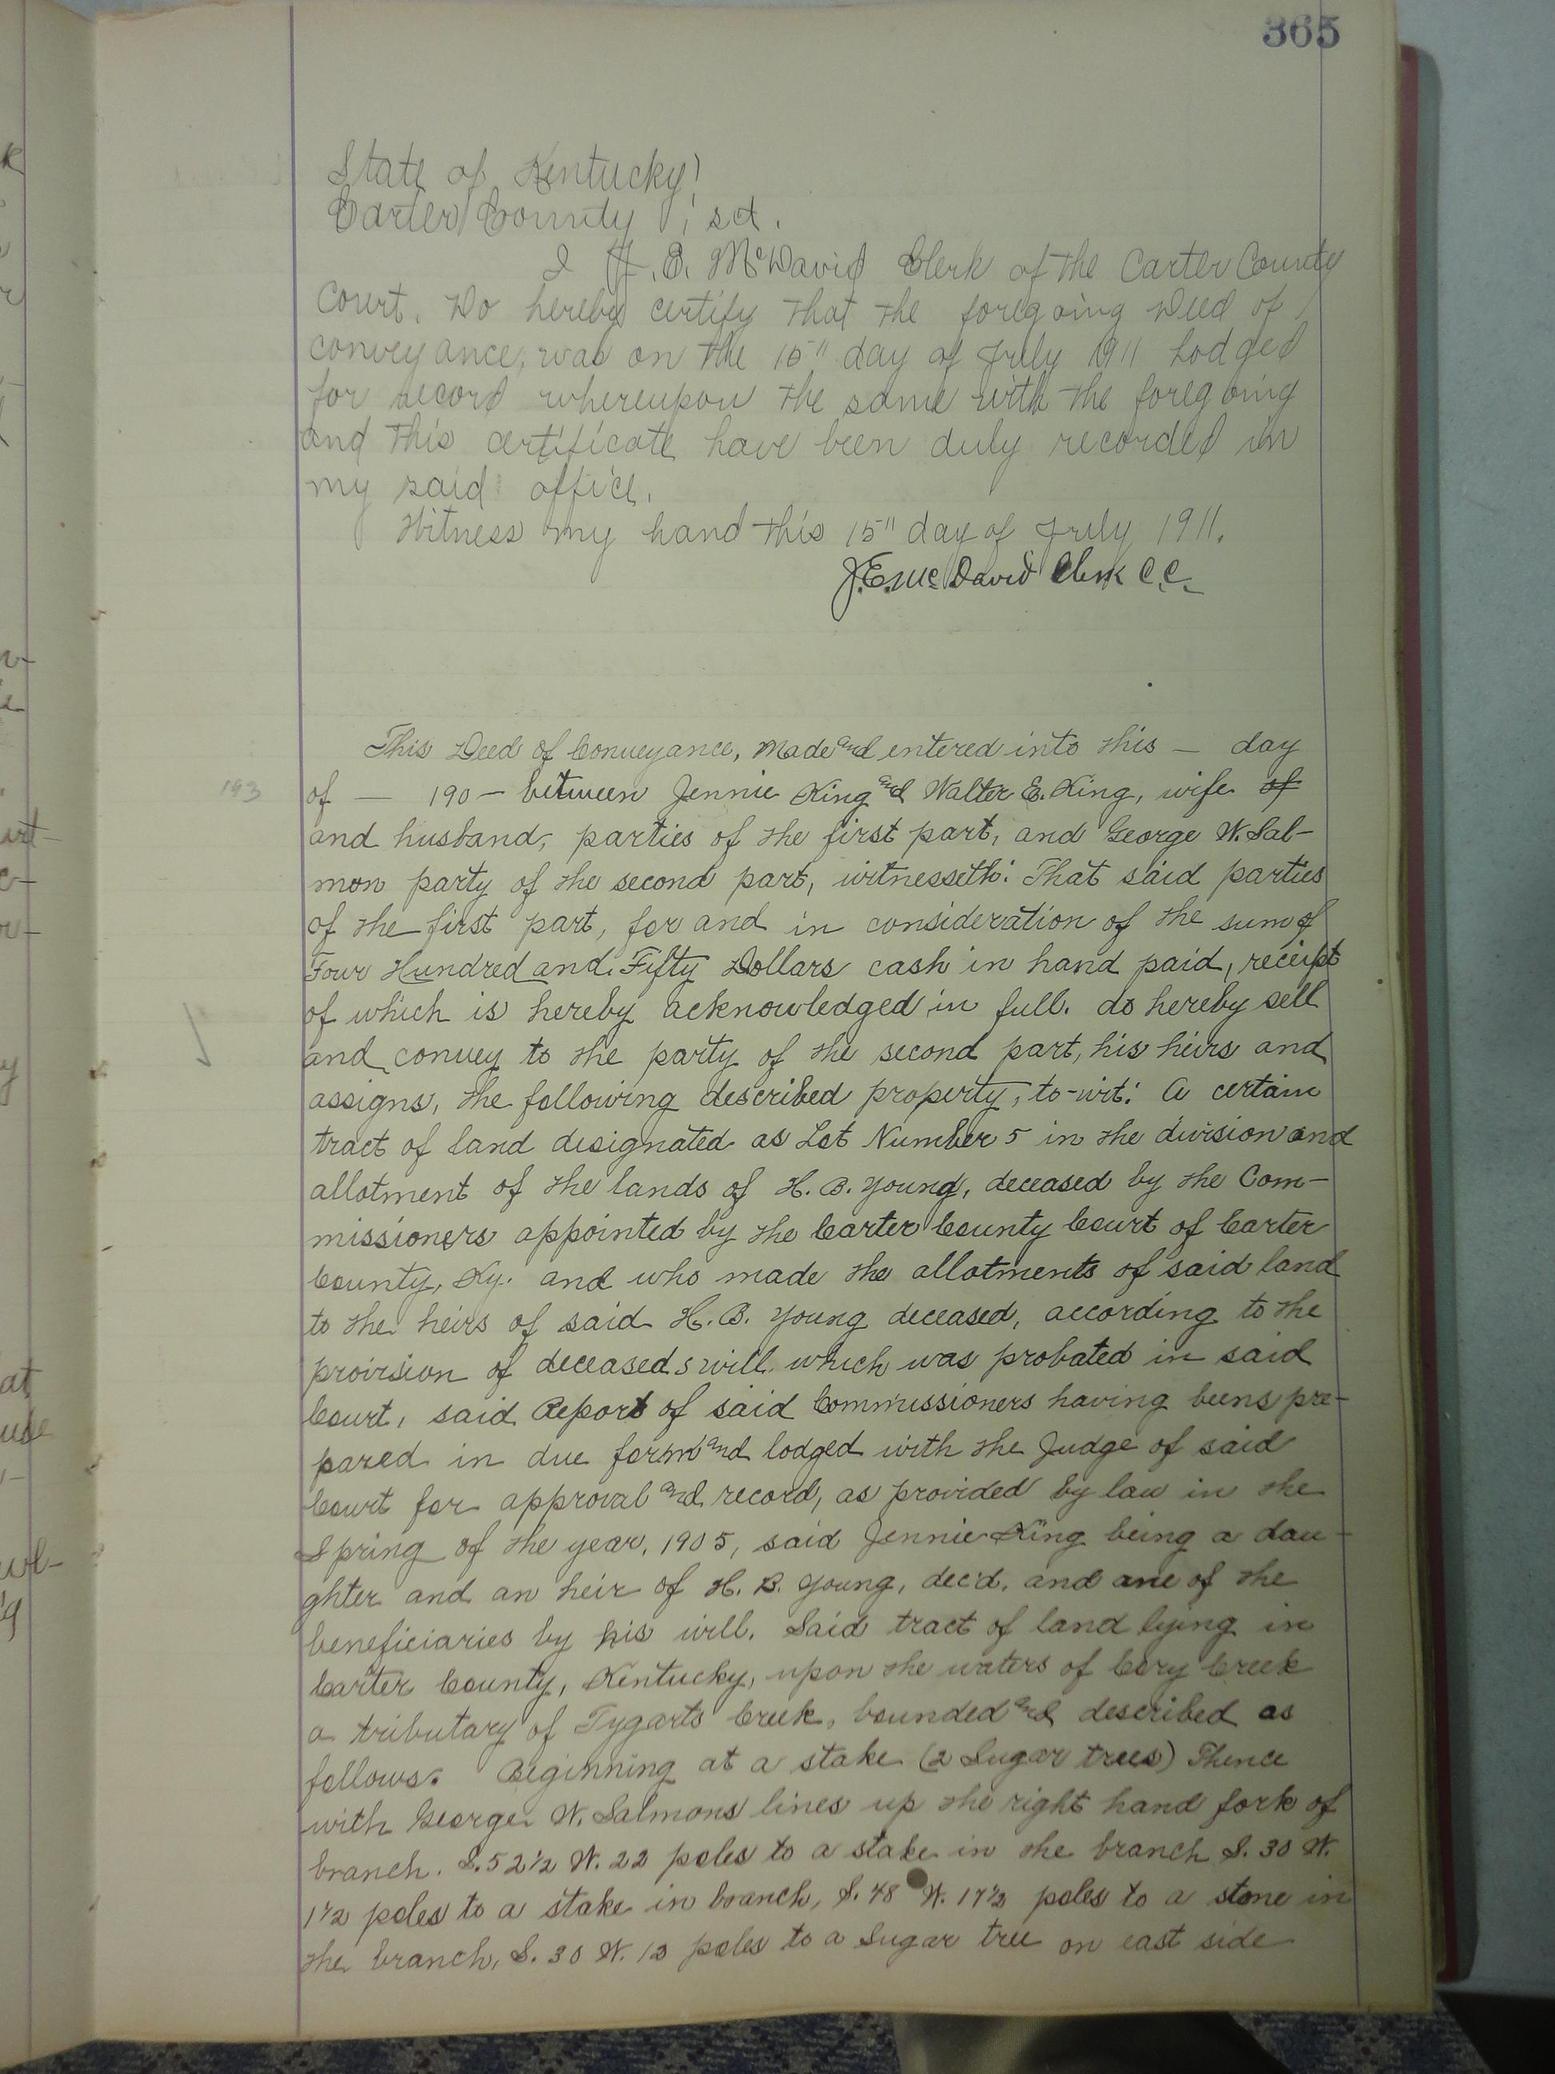 365
State of Kentucky
Carter County , sct.
I J. E. McDavid Clerk of the Carter County
Court. Do hereby certify that the foregoing Deed of
conveyance, was on the 15" day of July 1911 Lodged
for record whereupon the same with the foregoing
and this certificate have been duly recorded in
my said office.
Witness my hand this 15" day of July 1911.
J.E. McDavid Clerk C.C.
This Deed of Conveyance, Made and entered into this — day
193
of — 190 - between Jennie King and Walter E. King, wife of
and husband, parties of the first part, and George W. Sal-
mon party of the second part, witnesseth: That said parties
of the first part, for and in consideration of the sum of
Four Hundred and Fifty Dollars cash in hand paid, receipt
of which is hereby acknowledged in full. do hereby sell
and convey to the party of the second part, his heirs and
assigns, the following described property, to-wit: A certain
tract of land designated as Lot Number 5 in the division and
allotment of the lands of H. B. Young, deceased by the Com-
missioners appointed by the Carter County Court of Carter
County, Ky. and who made the allotments of said land
to the heirs of said H. B. Young deceased, according to the
provision of deceaseds will which was probated in said
Court, said Report of said Commissioners having been pre-
pared in due form and lodged with the Judge of said
Court for approval and record, as provided by law in the
Spring of the year, 1905, said Jennie King being a dau-
ghter and an heir of H. B. Young, dec'd. and one of the
beneficiaries by his will. Said tract of land lying in
Carter County, Kentucky, upon the waters of Cory Creek
a tributary of Tygarts Creek, bounded and described as
follows. Beginning at a stake (2 Sugar trees) Thence
with George W. Salmons lines up the right hand fork of
branch. S. 52 1/2 W. 22 poles to a stake in the branch S. 30 W.
1 1/2 poles to a stake in branch, S. 48 W. 17 1/2 poles to a stone in
the branch, S. 30 W. 13 poles to a Sugar tree on east side